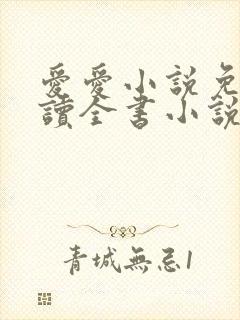 愛愛小説免
讀全書小說
青城無忌1